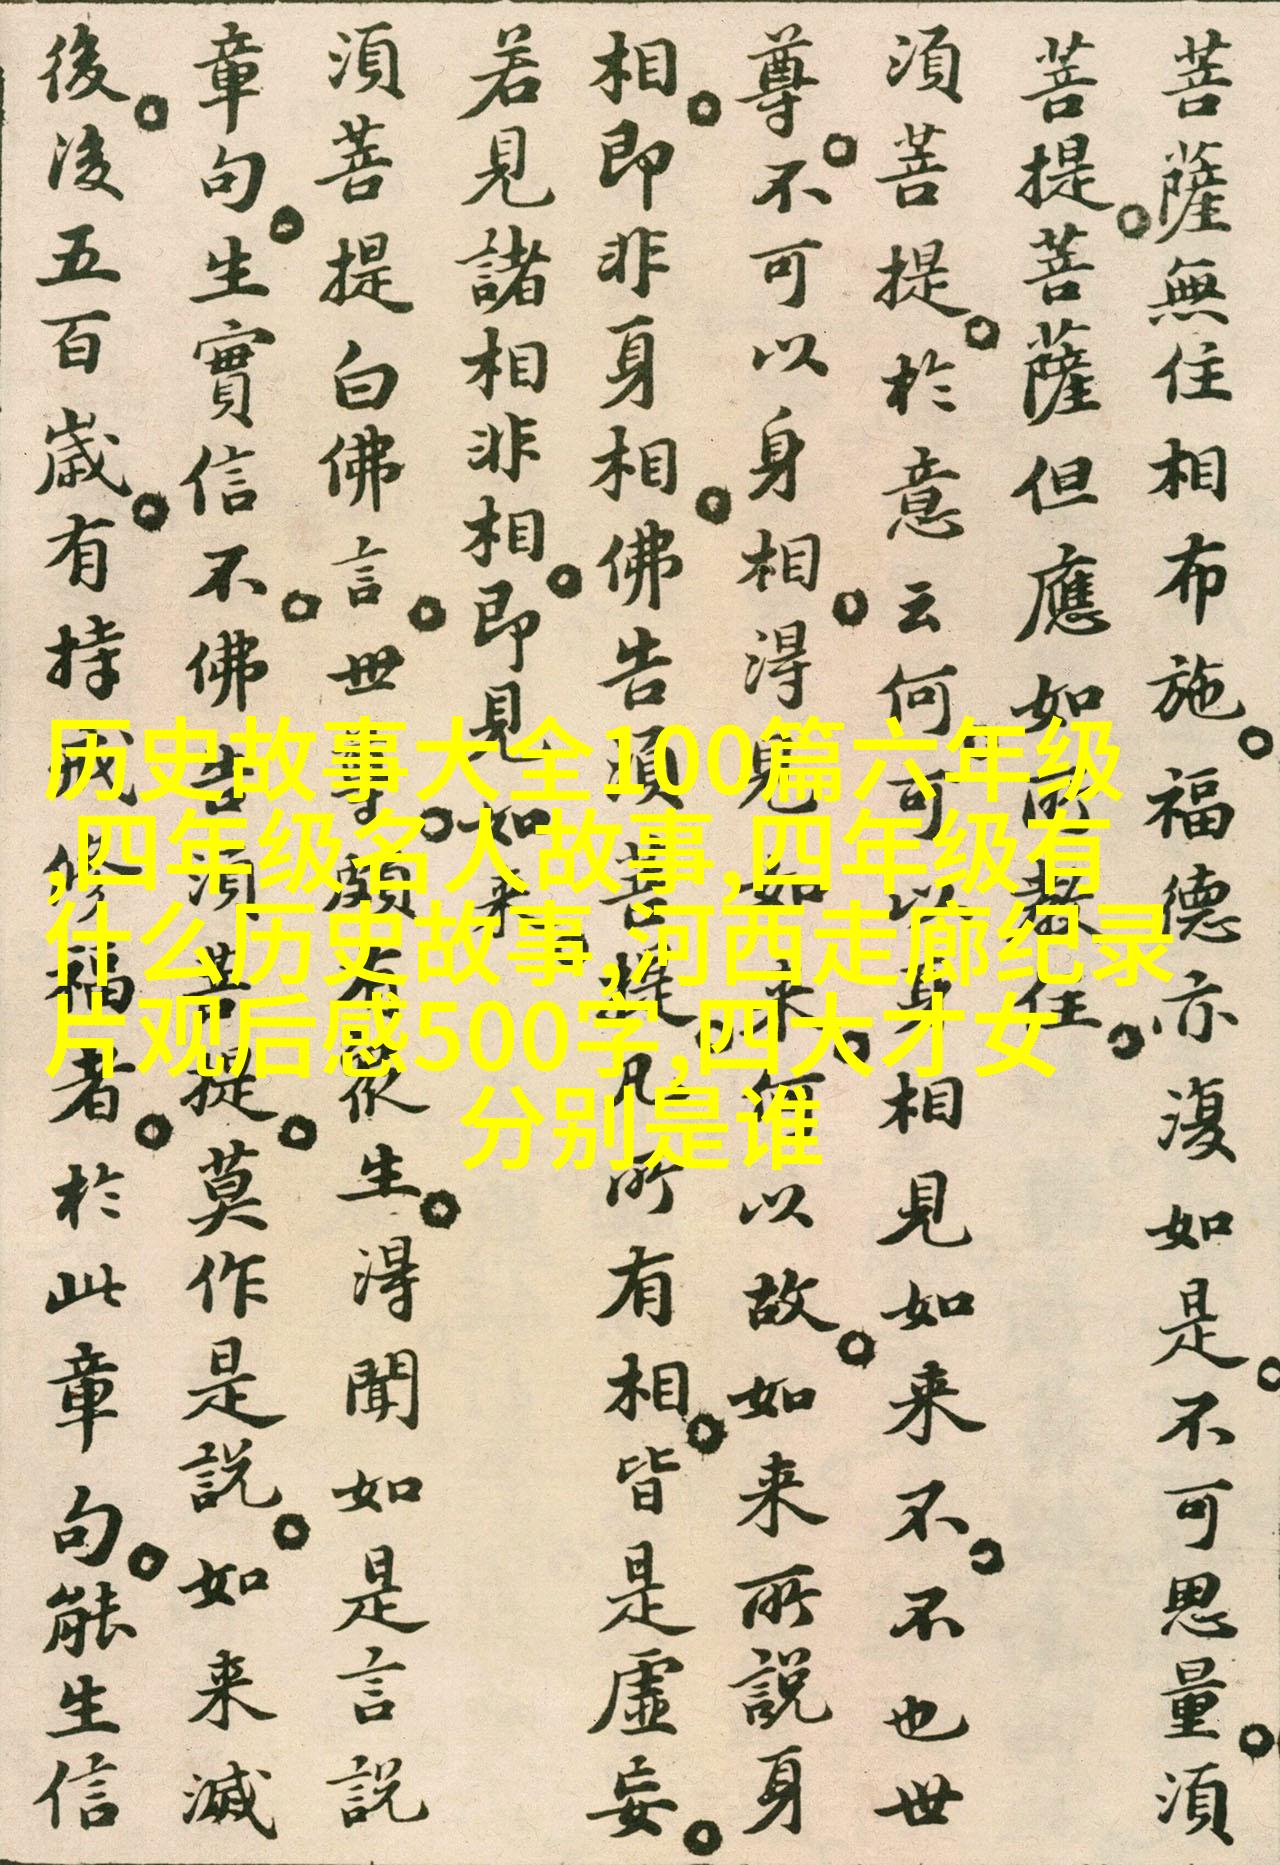 菩薩無住相布施福德亦復如是不可思量須
菩提菩薩但應如所教住
須菩提於意云何可以身相見如来不不也世
尊不可以身相得見如来何以故如来所說身
相即非身相佛告須菩提凡所有相皆是虛妄
若見諸相非相即見如来
須菩提白佛言世尊頗有眾生得聞如是言説
章句生實信不佛告須菩提莫作是説如来滅
後後五百歲有持戒修福者於此章句能生信
历史故事大全100篇六年级
,四年级名人故事,四年级有
什么历史故事,河西走廊纪录
片观后感500字,四大才女
分别是谁